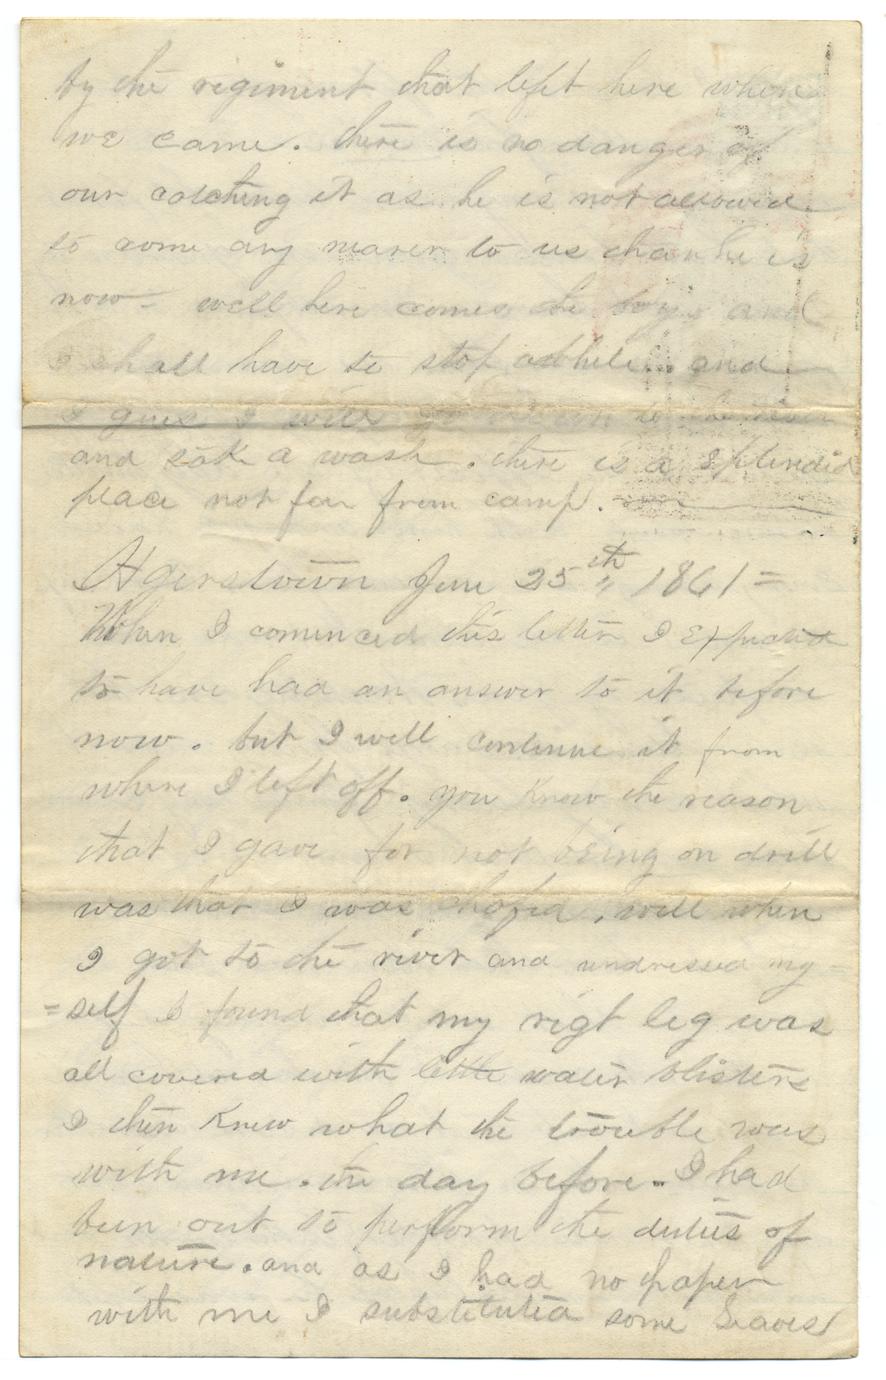 by the regiment that left here when
we came. there is no danger of
our catching it as he is not allowed
to come any nearer to us than he is
now - well here comes the boys and
I shall have to stop awhile. and
I guess I will go down to the river
and take a wash. there is a splendid
place not far from camp.
Hgerstown June 25th " 1861 =
When I comenced this letter I expected
to have had an answer to it before
now. but I will continue it from
where I left off. you know the reason
that I gave for not being on drill
was that I was chafed. well when
I got to the river and undressed my=
=self I found that my rigt leg was
all covered with little water blisters
I then knew what the trouble was
with me. the day before - I had
been out to perform the duties of
nature. and as I had no paper
with me I substituted some leaves